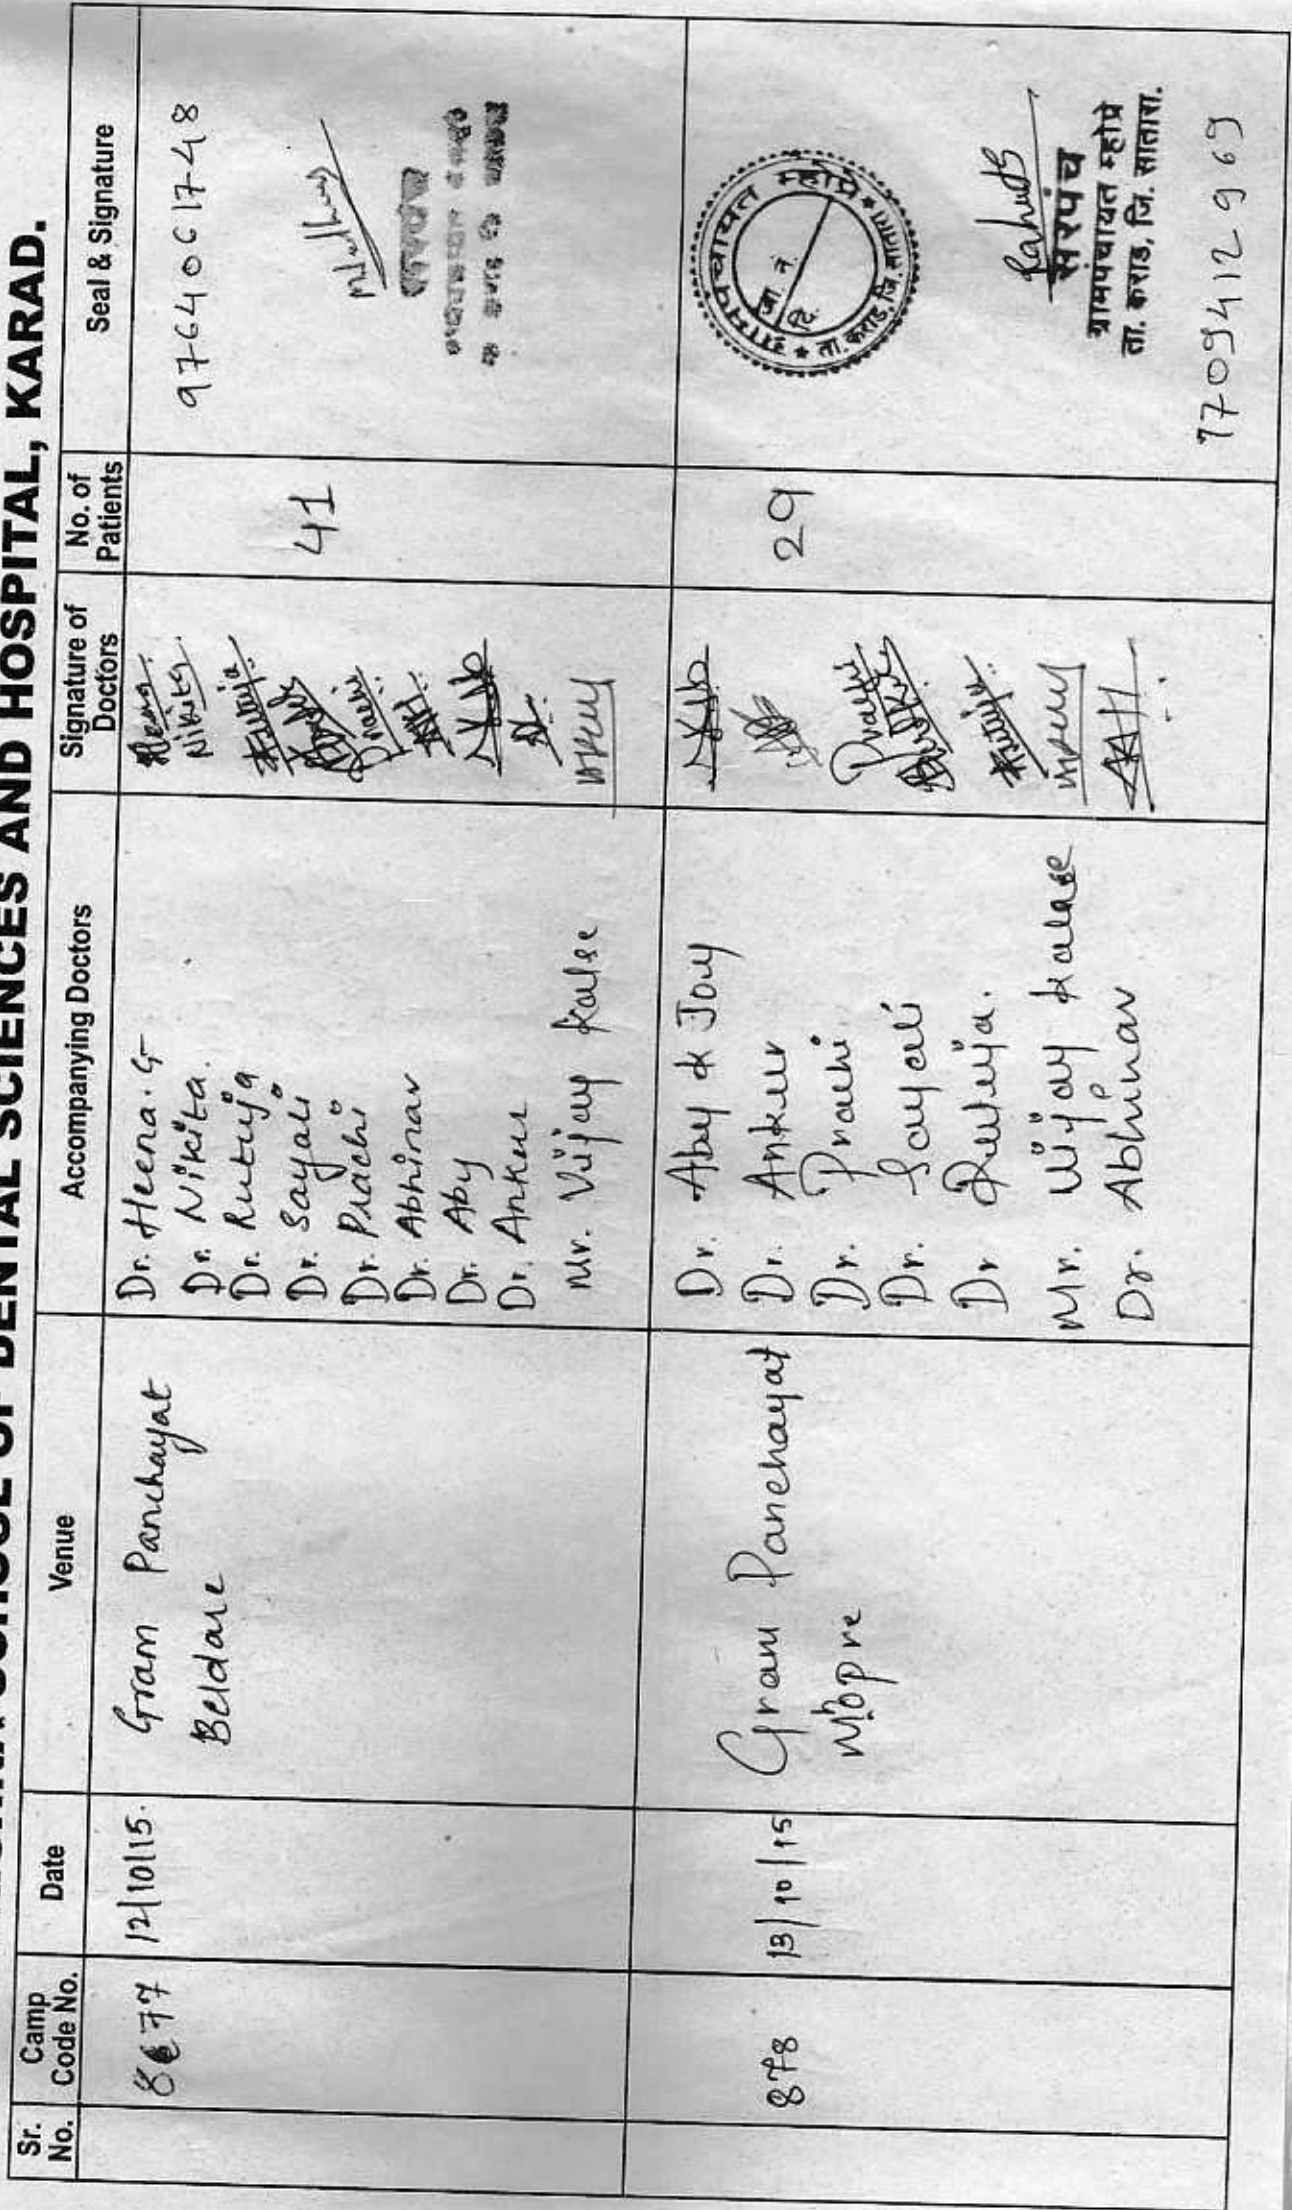 SCHOOL OF DENTAL SCIENCES AND HOSPITAL, KARAD.
Sr. No. Camp Code No. Date Venue Accompanying Doctors Signature of Doctors No. of Patients Seal & Signature
877 12/10/15. Gram Panchayat
Beldare
Dr. Heena. G
Dr. Nikita.
Dr. Rutuja
Dr. Sayali
Dr. Prachi
Dr. Abhinav
Dr. Aby
Dr. Ankur
Mr. Vijay Kalse
Heena
Nikita
Rutuja
Prachi
41
9764061748
878 13/10/15 Gram Panchayat
Mhopre
Dr. Aby K Jouy
Dr. Ankur
Dr. Prachi
Dr. Sayali
Dr Rutuja.
Mr. Vijay Kalase
Dr. Abhinav
Prachi
Rutuja
29
ग्रामपंचायत म्होप्रे
जा. नं.
दि.
ता. कराड, जि. सातारा
सरपंच
ग्रामपंचायत म्होप्रे
ता. कराड, जि. सातारा.
7709412969